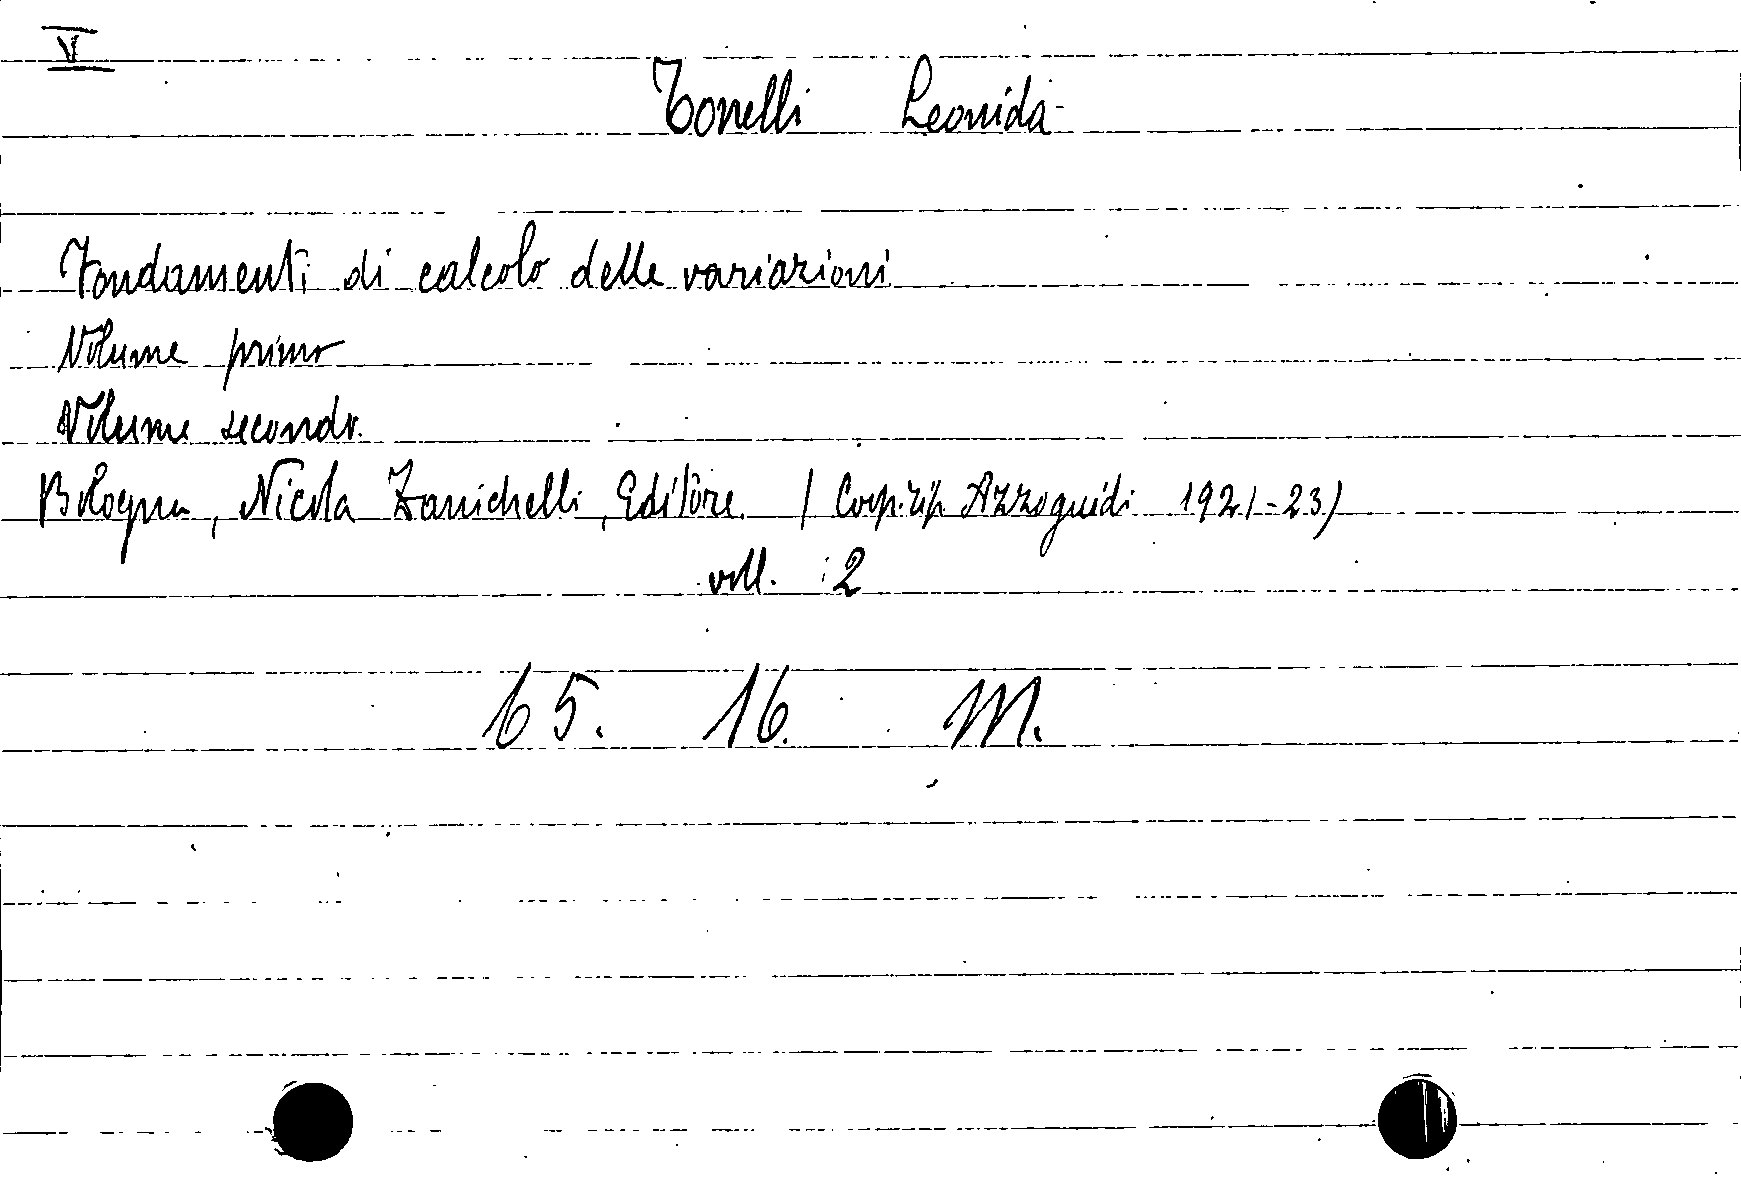 V
Tonelli Leonida
Fondamenti di calcolo delle variazioni
Volume primo
Volume secondo.
Bologna, Nicola Zanichelli, Editore. (Coop. tip. Azzoguidi 1921-23)
voll. 2
65. 16. M.